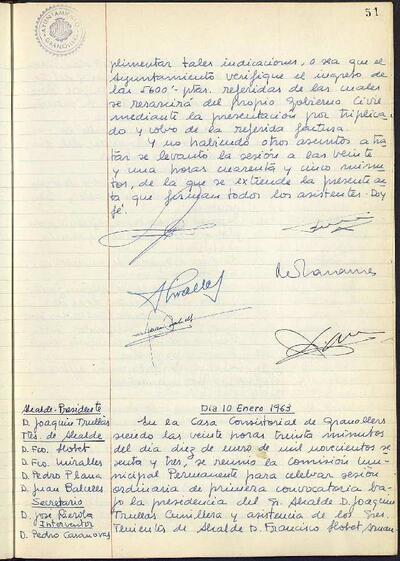 51
AYUNTAMIENTO
GRANOLLERS
plimentar tales indicaciones, o sea que el
Ayuntamiento verifique el ingreso de
las 5600'- ptas. referidas de las cuales
se resarcirá del propio Gobierno Civil
mediante la presentación por triplica-
do y volvo de la referida factura.
Y no habiendo otros asuntos a tra-
tar se levantó la sesión a las veinte
y una horas cuarenta y cinco minu-
tos, de la que se extiende la presente ac-
ta que firman todos los asistentes. Doy
fé.
Alcalde-Presidente
D. Joaquín Trullás
Ttes. de Alcalde
D. Fco. Llobet
D. Fco. Miralles
D. Pedro Plana
D. Juan Batalles
Secretario
D. José
Interventor
D. Pedro Casanovas
Dia 10 Enero 1963
En la Casa Consistorial de Granollers
siendo las veinte horas treinta minutos
del dia diez de enero de mil novecientos se-
senta y tres, se reunió la Comisión Mu-
nicipal Permanente para celebrar sesión
ordinaria de primera convocatoria ba-
jo la presidencia del Sr. Alcalde D. Joaquin
Trullás Cunillera y asistencia de los Sres.
Tenientes de Alcalde D. Francisco Llobet